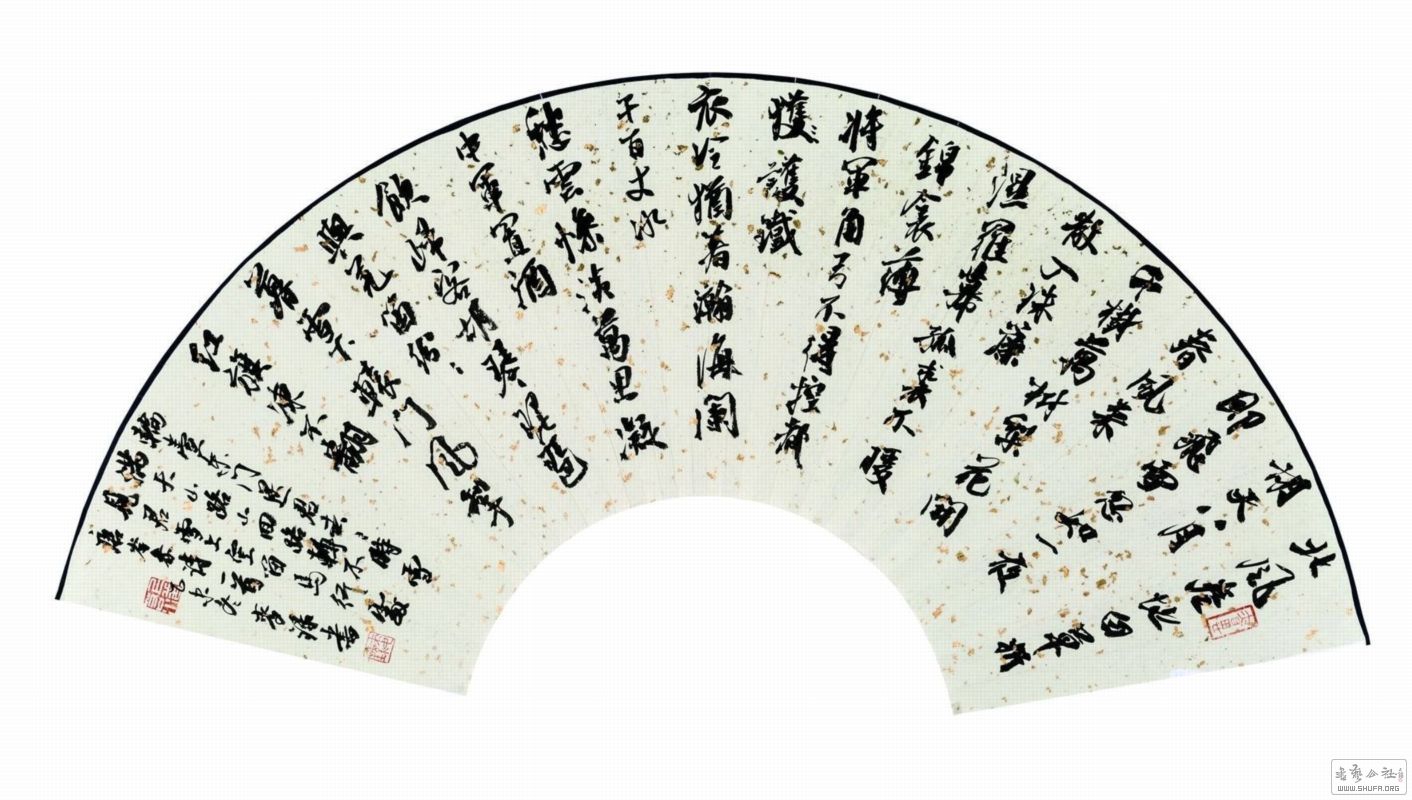 北風捲地白草折
胡天八月
即飛雪忽如一夜
春風來
千樹萬樹梨花開
散入珠簾
濕羅幕狐裘不暖
錦衾薄
將軍角弓不得控都
護〻護鐵
衣冷猶著瀚海闌
干百丈冰
愁雲慘淡萬里凝
中軍置酒
飲歸客胡琴琵琶
與羌笛紛〻
暮雪下轅門風掣
紅旗凍不翻
輪臺東門送君去〻時雪
滿天山路山回路轉不
見君雪上空留馬行處
唐岑參詩一首 書
WWW.SHUFA.ORG